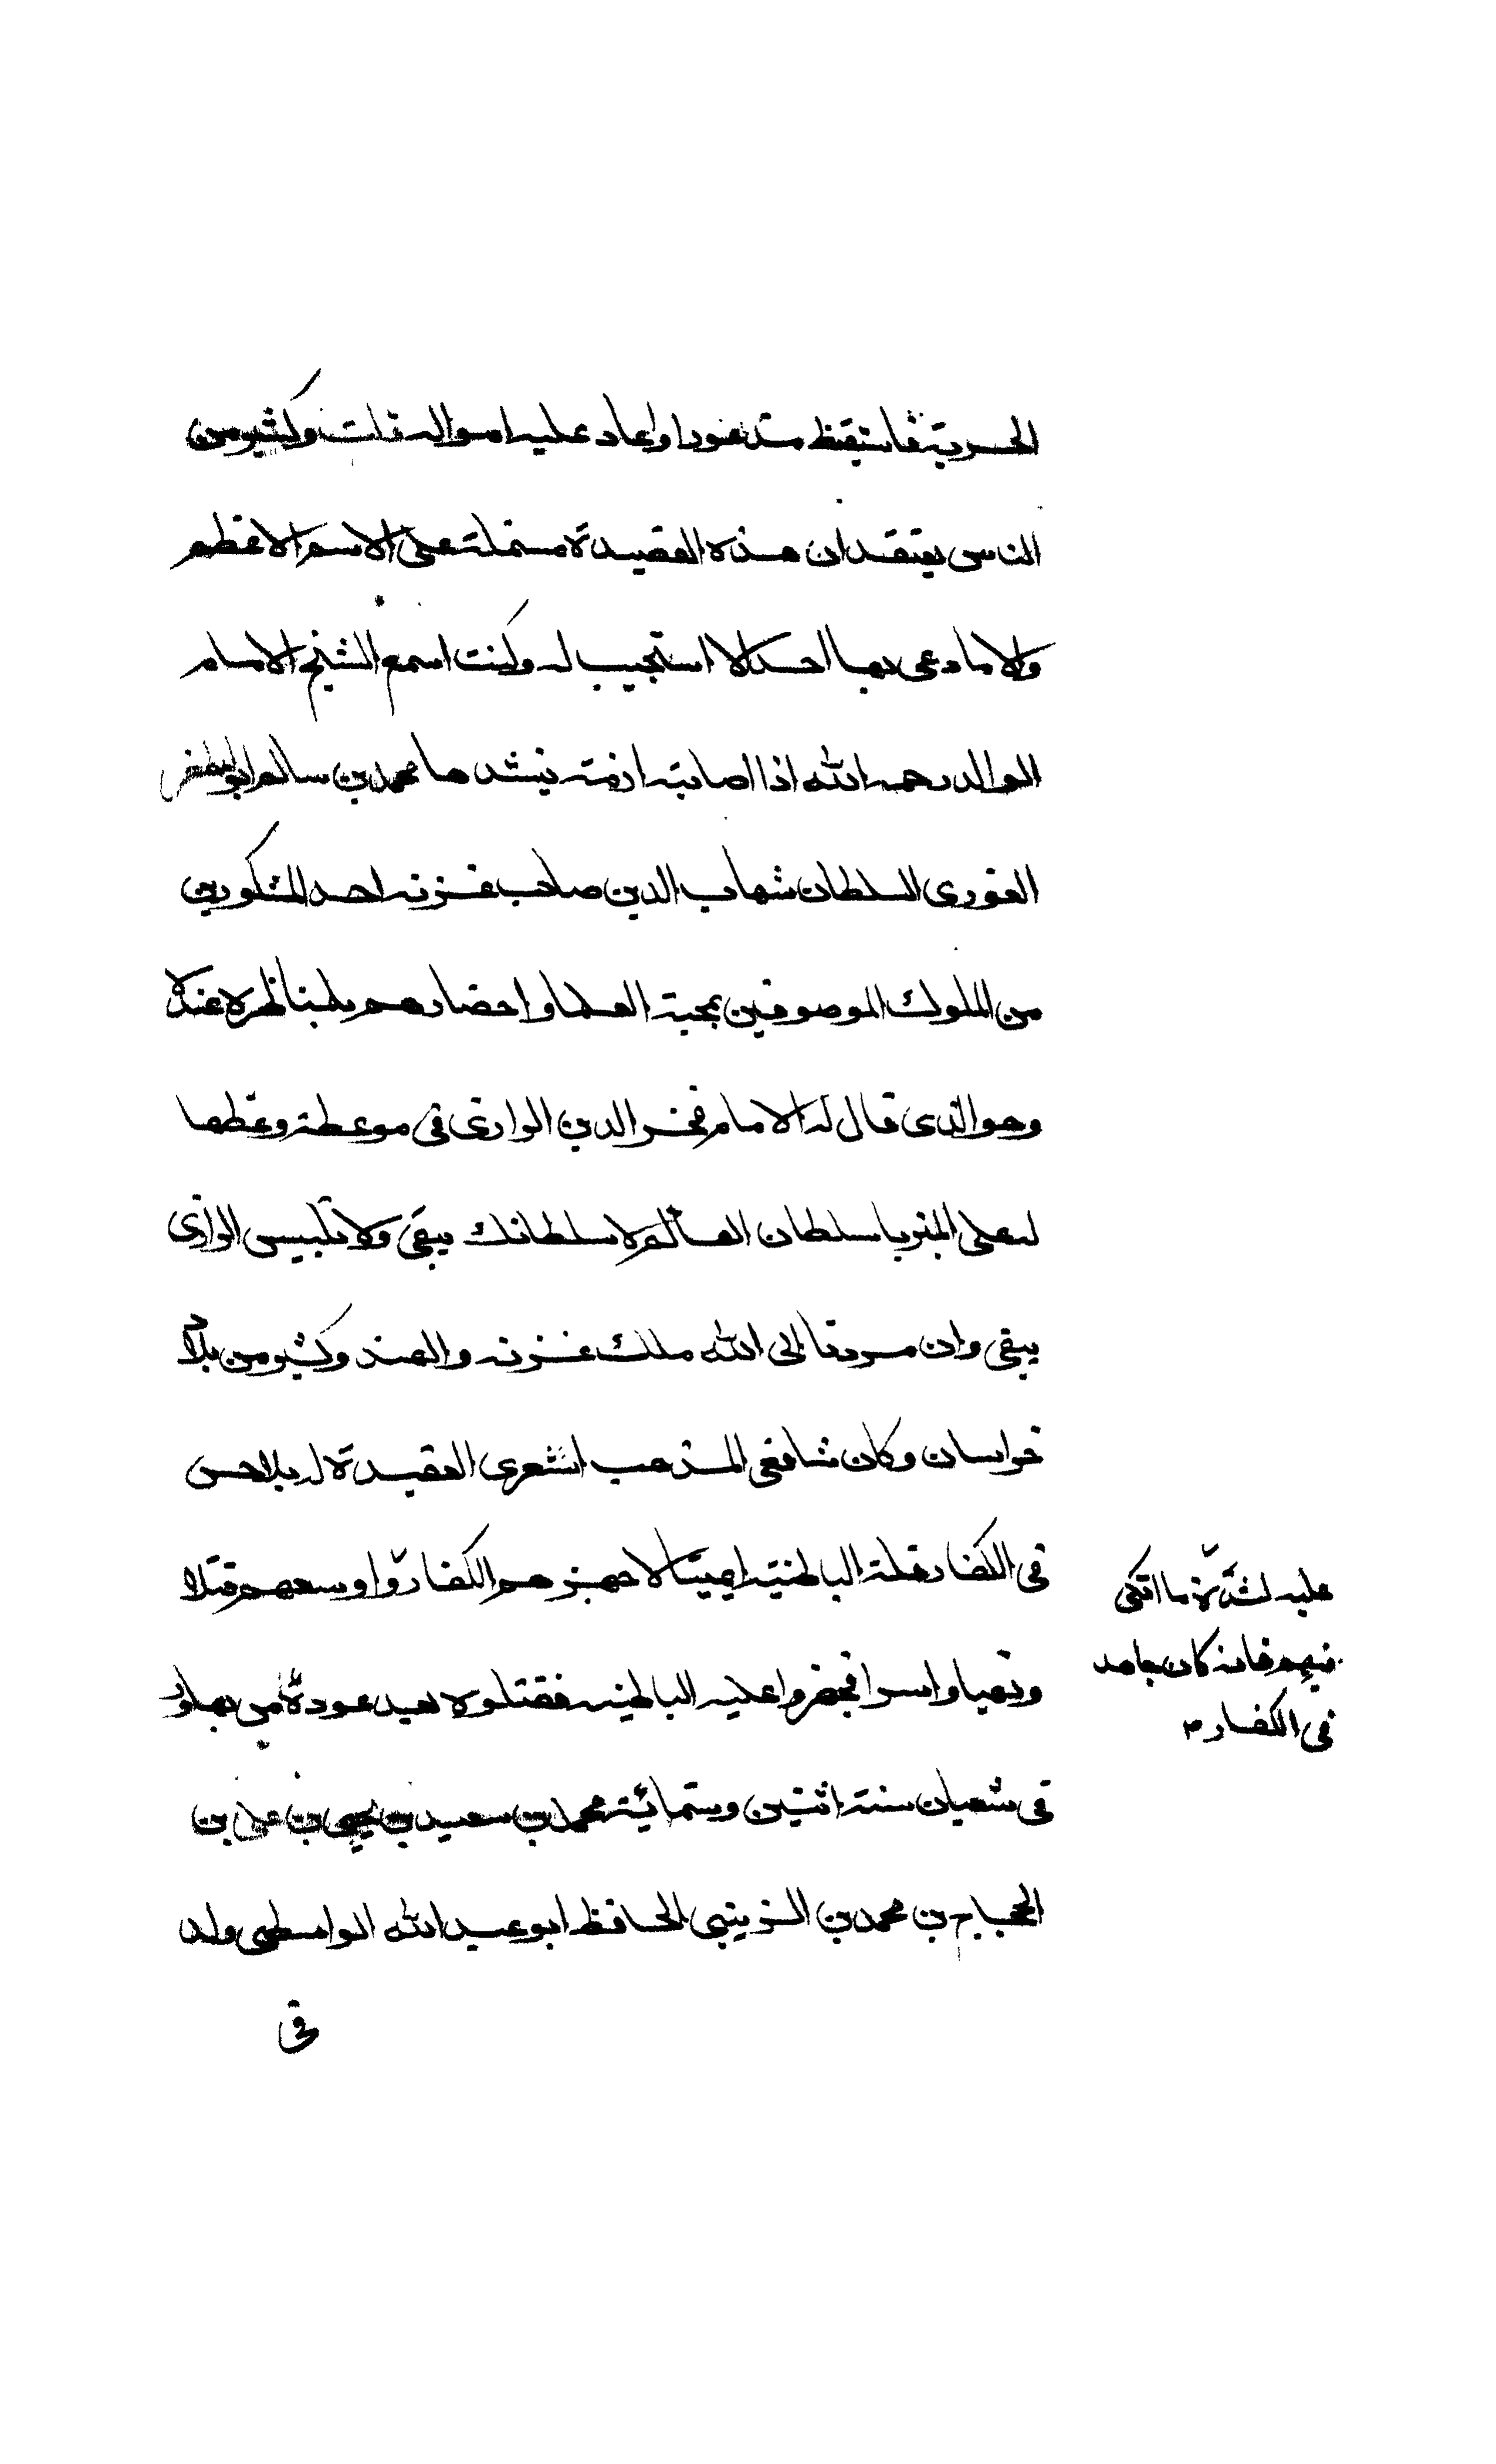 الحربة فاستيقظ مذعورا واعاد عليه امواله قلت وكثير من
الناس يعتقد ان هذه القصيدة مشتملة على الاسم الاعظم
والا ما دعى بها احد الا استجيب له وكنت اسمع الشيخ الامام
الوالد رحمه الله اذا اصابته ازمة ينشدها محمد بن سالم ابو المظفر
الغورى السلطان شهاب الدين صاحب غزنه احد المشكورين
من الملوك الموصوفين بمحبة العلما واحضارهم للمناظرة عنده
وهو الذى قال له الامام فخر الدين الرازى فى موعظة وعظها
له على المنبر يا سلطان العالم لا سلطانك يبقى ولا تلبيس الرازى
يبقى وان مردنا الى الله ملك غزنه والهند وكثير من بلاد
خراسان وكان شافعى المذهب اشعرى العقيدة له بلا حسن
فى الكفار قتلته الباطنية اغتيالا جهزهم الكفار واوسعهم قتلا
ونهبا واسرا فجهزوا عليه الباطنيه فقتلوه بعيد عوده من بهاور
فى شعبان سنة اثنتين وستمائية محمد بن سعيد بن يحيى بن على بن
الحجاج بن محمد بن الزينبى الحافظ ابو عبد الله الواسطى ولد
فى
عليه لشدة ما انكى
فيهم فانه كان جاهد
فى الكفار م